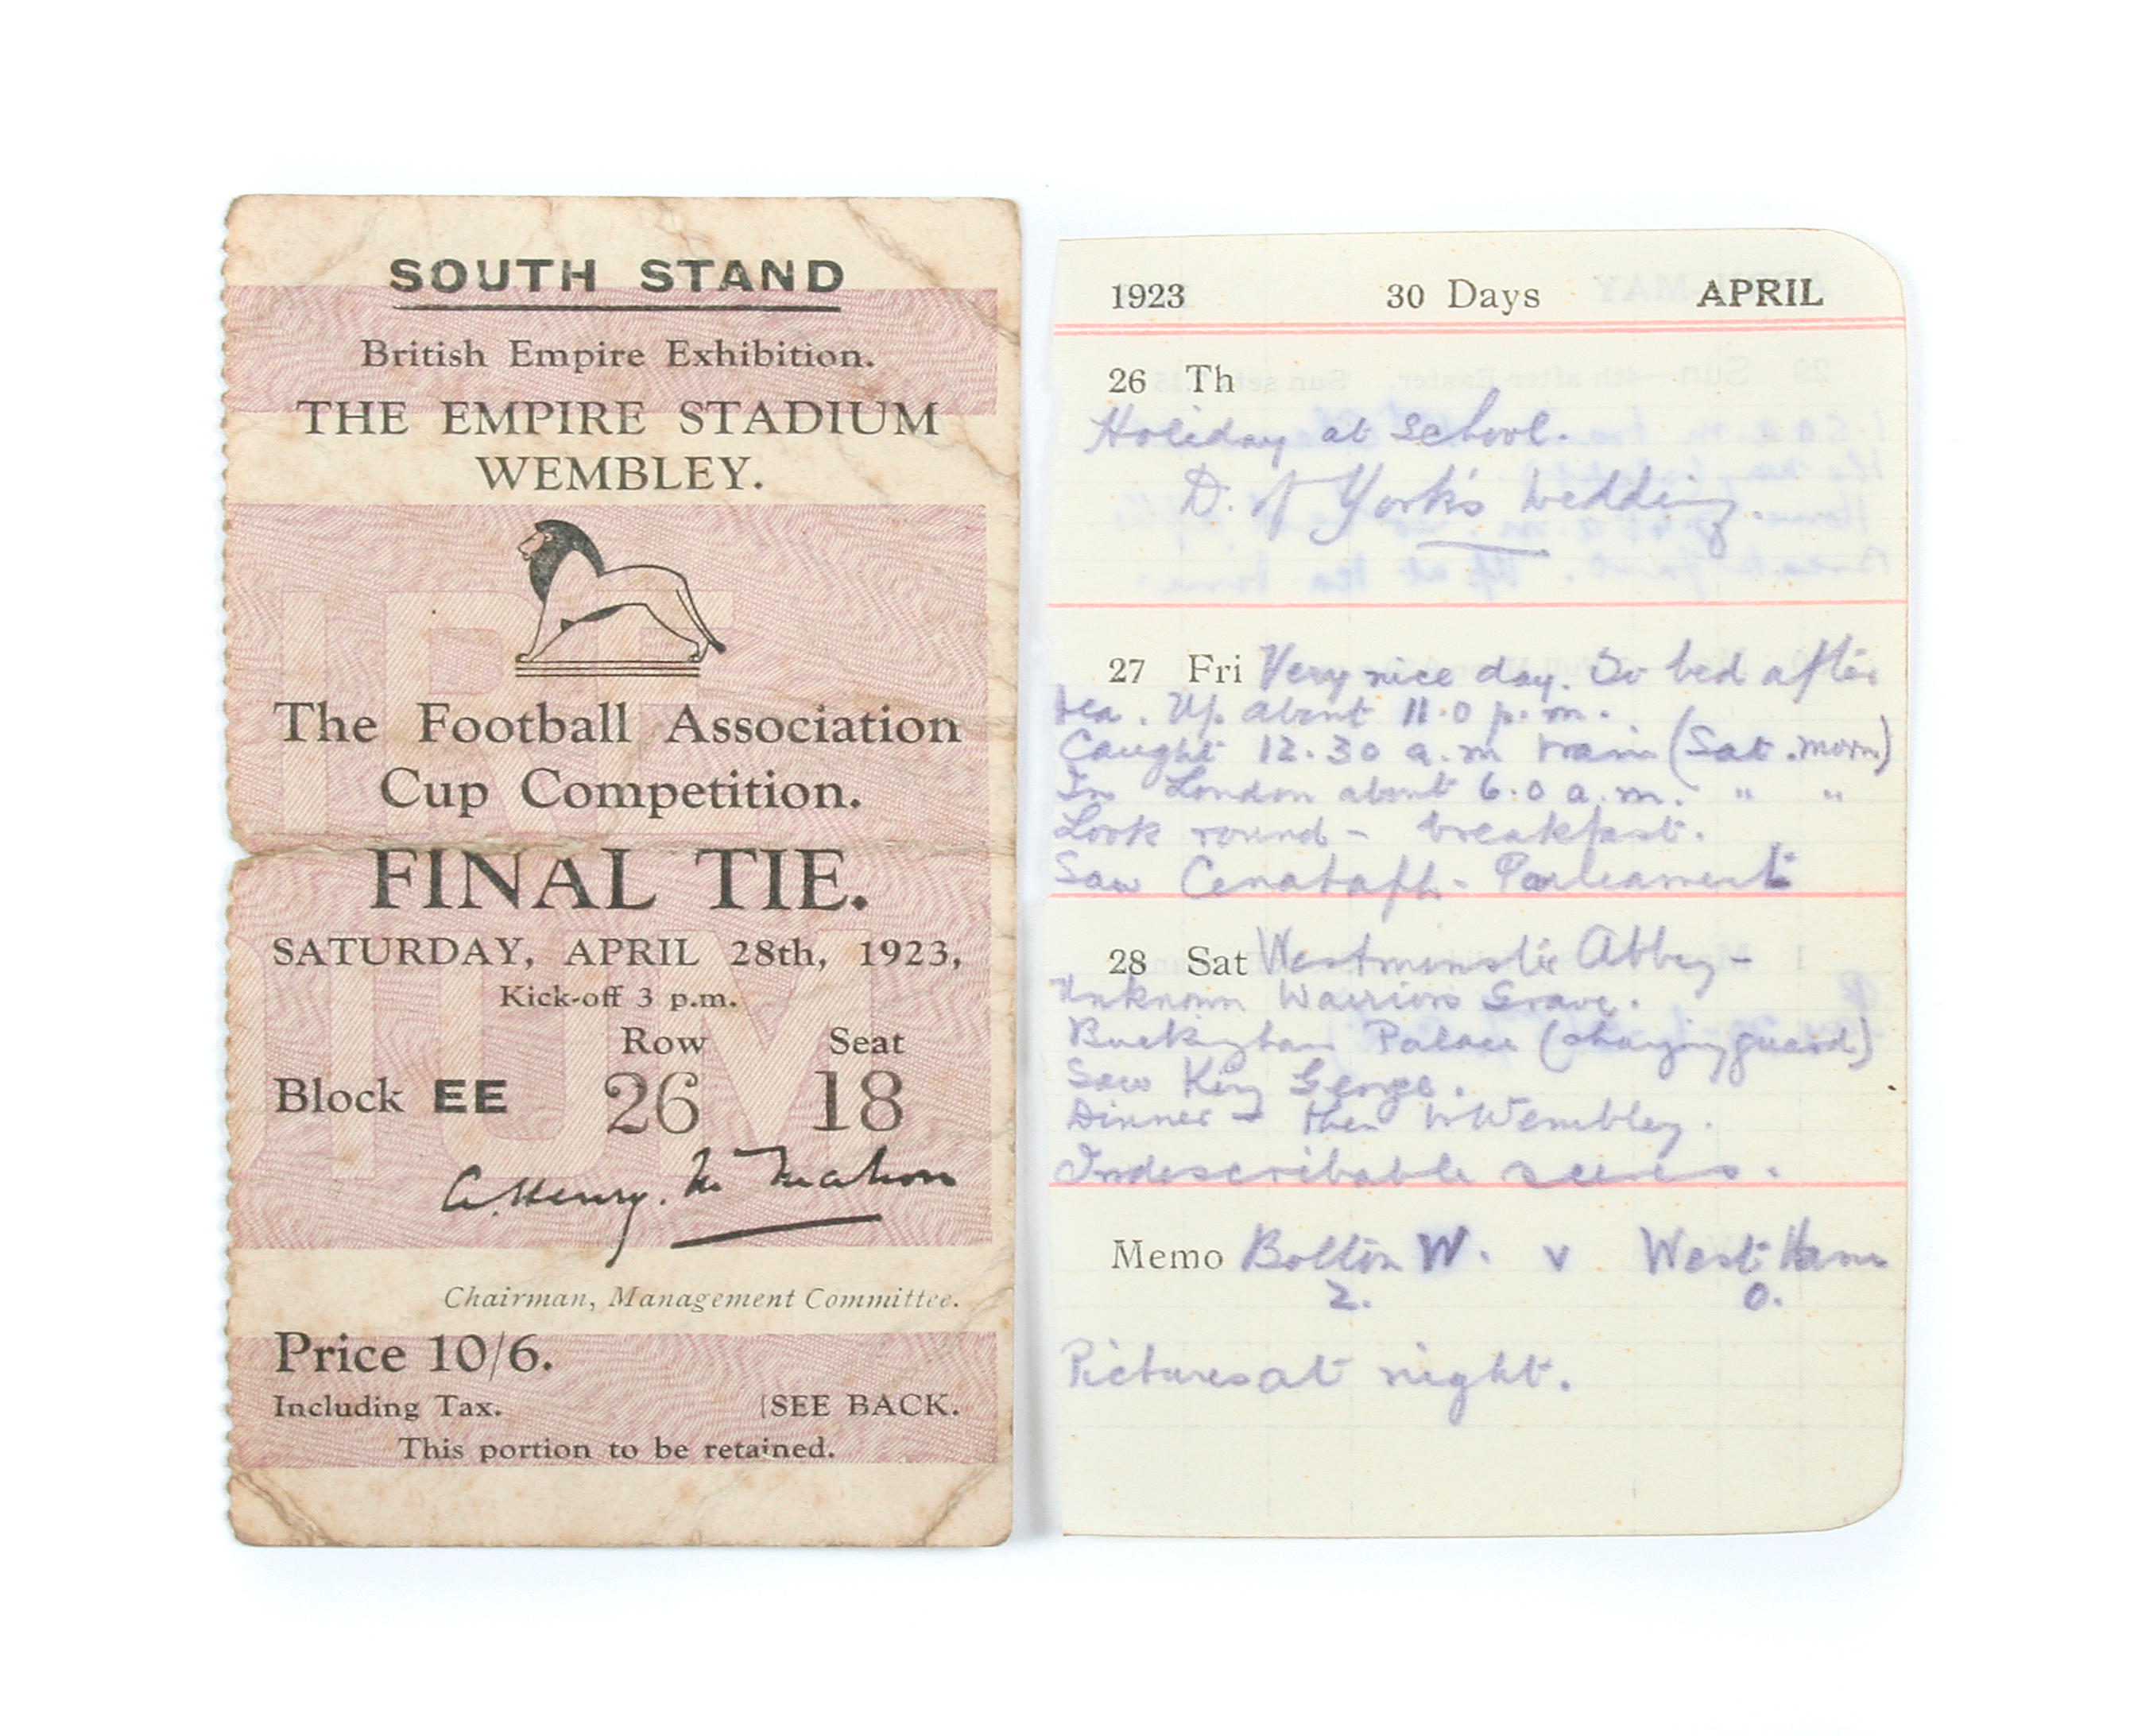 SOUTH STAND
British Empire Exhibition.
THE EMPIRE STADIUM
WEMBLEY.
The Football Association
Cup Competition.
FINAL TIE.
SATURDAY, APRIL 28th, 1923,
Kick-off 3 p.m.
Row Seat
Block EE 26 18
A. Henry. McMahon
Chairman, Management Committee.
Price 10/6.
Including Tax. [SEE BACK.
This portion to be retained.
1923 30 Days APRIL
26 Th
Holiday at school.
D. of York's wedding.
27 Fri Very nice day. To bed after
tea. Up about 11.0 p.m.
Caught 12.30 a.m train (Sat. morn)
In London about 6.0 a.m. " "
Look round - breakfast.
Saw Cenataph - Parliament
28 Sat Westminster Abbey -
Unknown Warriors Grave.
Buckingham Palace (changing guard)
Saw King George.
Dinner - then to Wembley.
Indescribable scenes.
Memo Bolton W. v West Ham
2. 0.
Pictures at night.